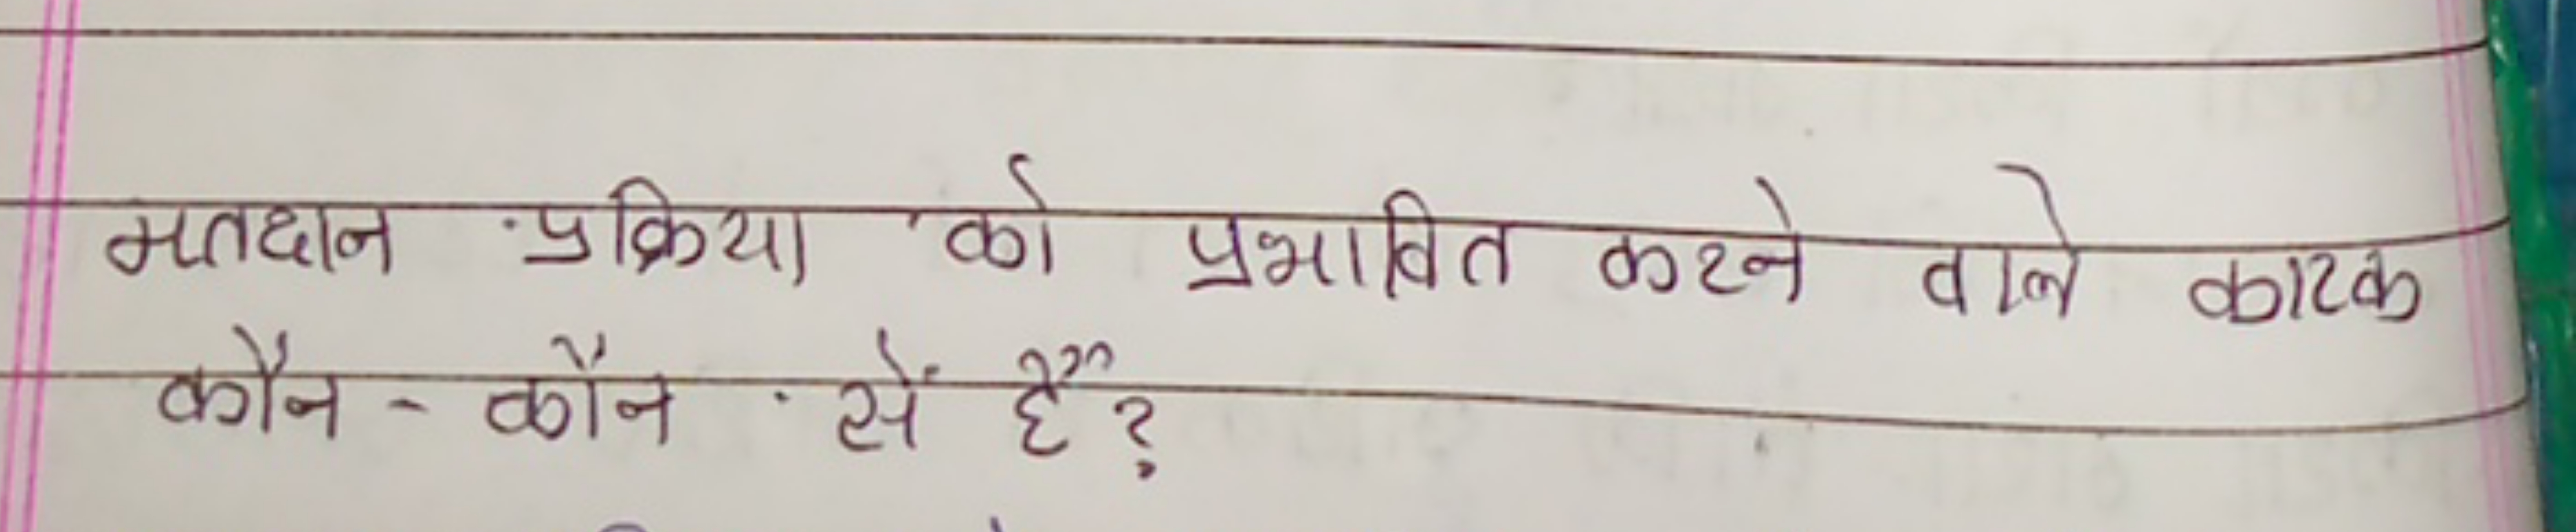 मतदान प्रक्रिया को प्रभावित करने वाले कारक
कौन - कौन सें हैं?